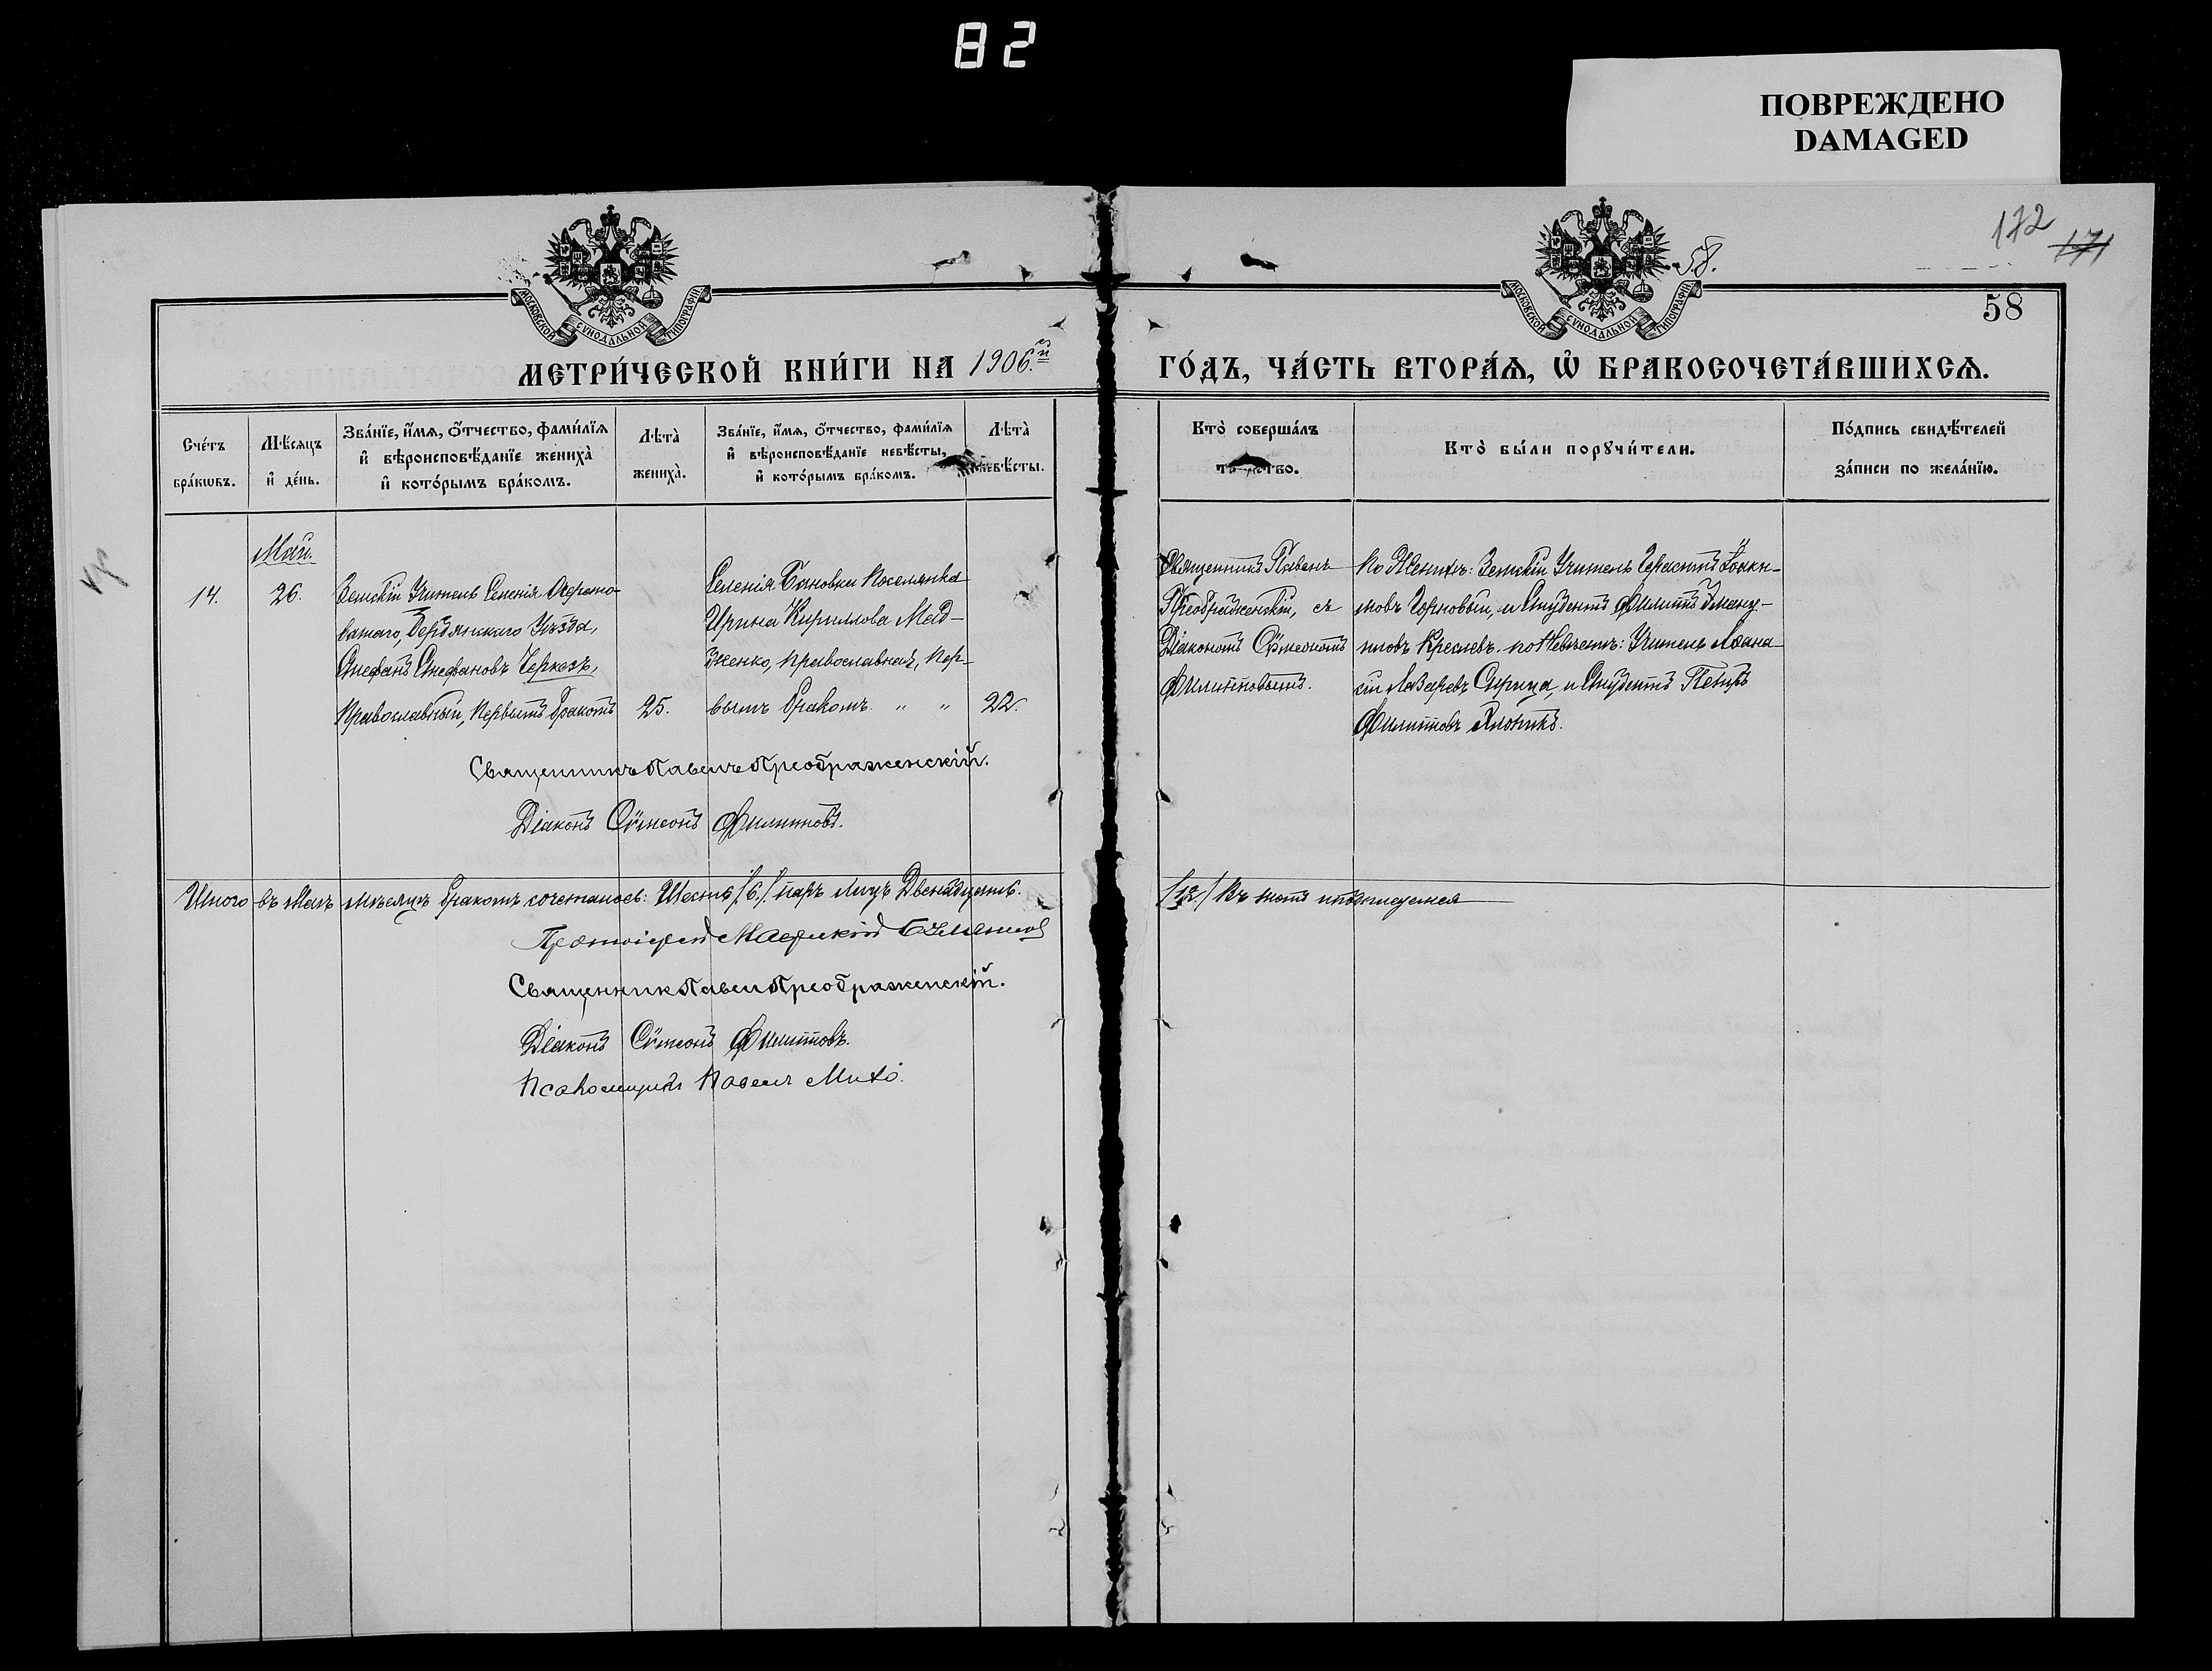 82
ПОВРЕЖДЕНО
DAMAGED
172
171
58.
58
МОСКОВСКОЙ СУНОДАЛЬНОЙ ТИПОГРАФІИ
МОСКОВСКОЙ СУНОДАЛЬНОЙ ТИПОГРАФІИ
МЕТРИ́ЧЕСКОЙ КНИ́ГИ НА 1906.й ГО́ДЪ, ЧА́СТЬ ВТОРА́Ѧ, Ѽ БРАКОСОЧЕТА́ВШИХСѦ.
Сче́тъ бра́кѡвъ.
Мѣ́сяцъ и҆ де́нь.
Зва́нїе, и҆́мѧ, ѻ҆́тчество, фами́лїѧ и҆ вѣроисповѣ́данїе жениха̀ и҆ кото́рымъ бра́комъ.
Лѣта̀ жениха̀.
Зва́нїе, и҆́мѧ, ѻ҆́тчество, фами́лїѧ и҆ вѣроисповѣ́данїе невѣ́сты, и҆ кото́рымъ бра́комъ.
Лѣта̀ невѣ́сты.
Кто̀ соверша́лъ та́инство.
Кто̀ бы́ли порꙋчи́тели.
По́дпись свидѣ́телей за́писи по жела́нїю.
Май.
14.
26.
Земскій Учитель Селенія
ватаго, Бердянскаго Уѣзда,
Стефанъ Стефановъ Черкезъ,
Православный, Первымъ бракомъ
25.
Селенія Бановки Поселянка
Ирина Кириллова Мад-
женко, православная, пер-
вымъ бракомъ. " "
22.
Священникъ Павелъ
Преображенскій, съ
Діакономъ Сѵмеономъ
Филипповымъ.
По Женихѣ: Земскій Учитель Герасимъ Іоаки-
мовъ Горновый, и Студентъ Филиппъ
повъ по Невѣстѣ: Учитель Аѳана-
сій Лазаревъ Сирица, и Студентъ Петръ
Филипповъ
Священникъ Павелъ Преображенскій.
Діаконъ Сѵмеонъ Филипповъ.
Итого въ Маѣ мѣсяцѣ бракомъ сочеталось: Шесть /6./ паръ лицъ Двенадцать.
/12/ Въ томъ и подписуемся
Протоіерей
Священник Павел Преображенскій.
Діаконъ Сѵмеонъ Филипповъ.
Псаломщикъ Павелъ Михо.